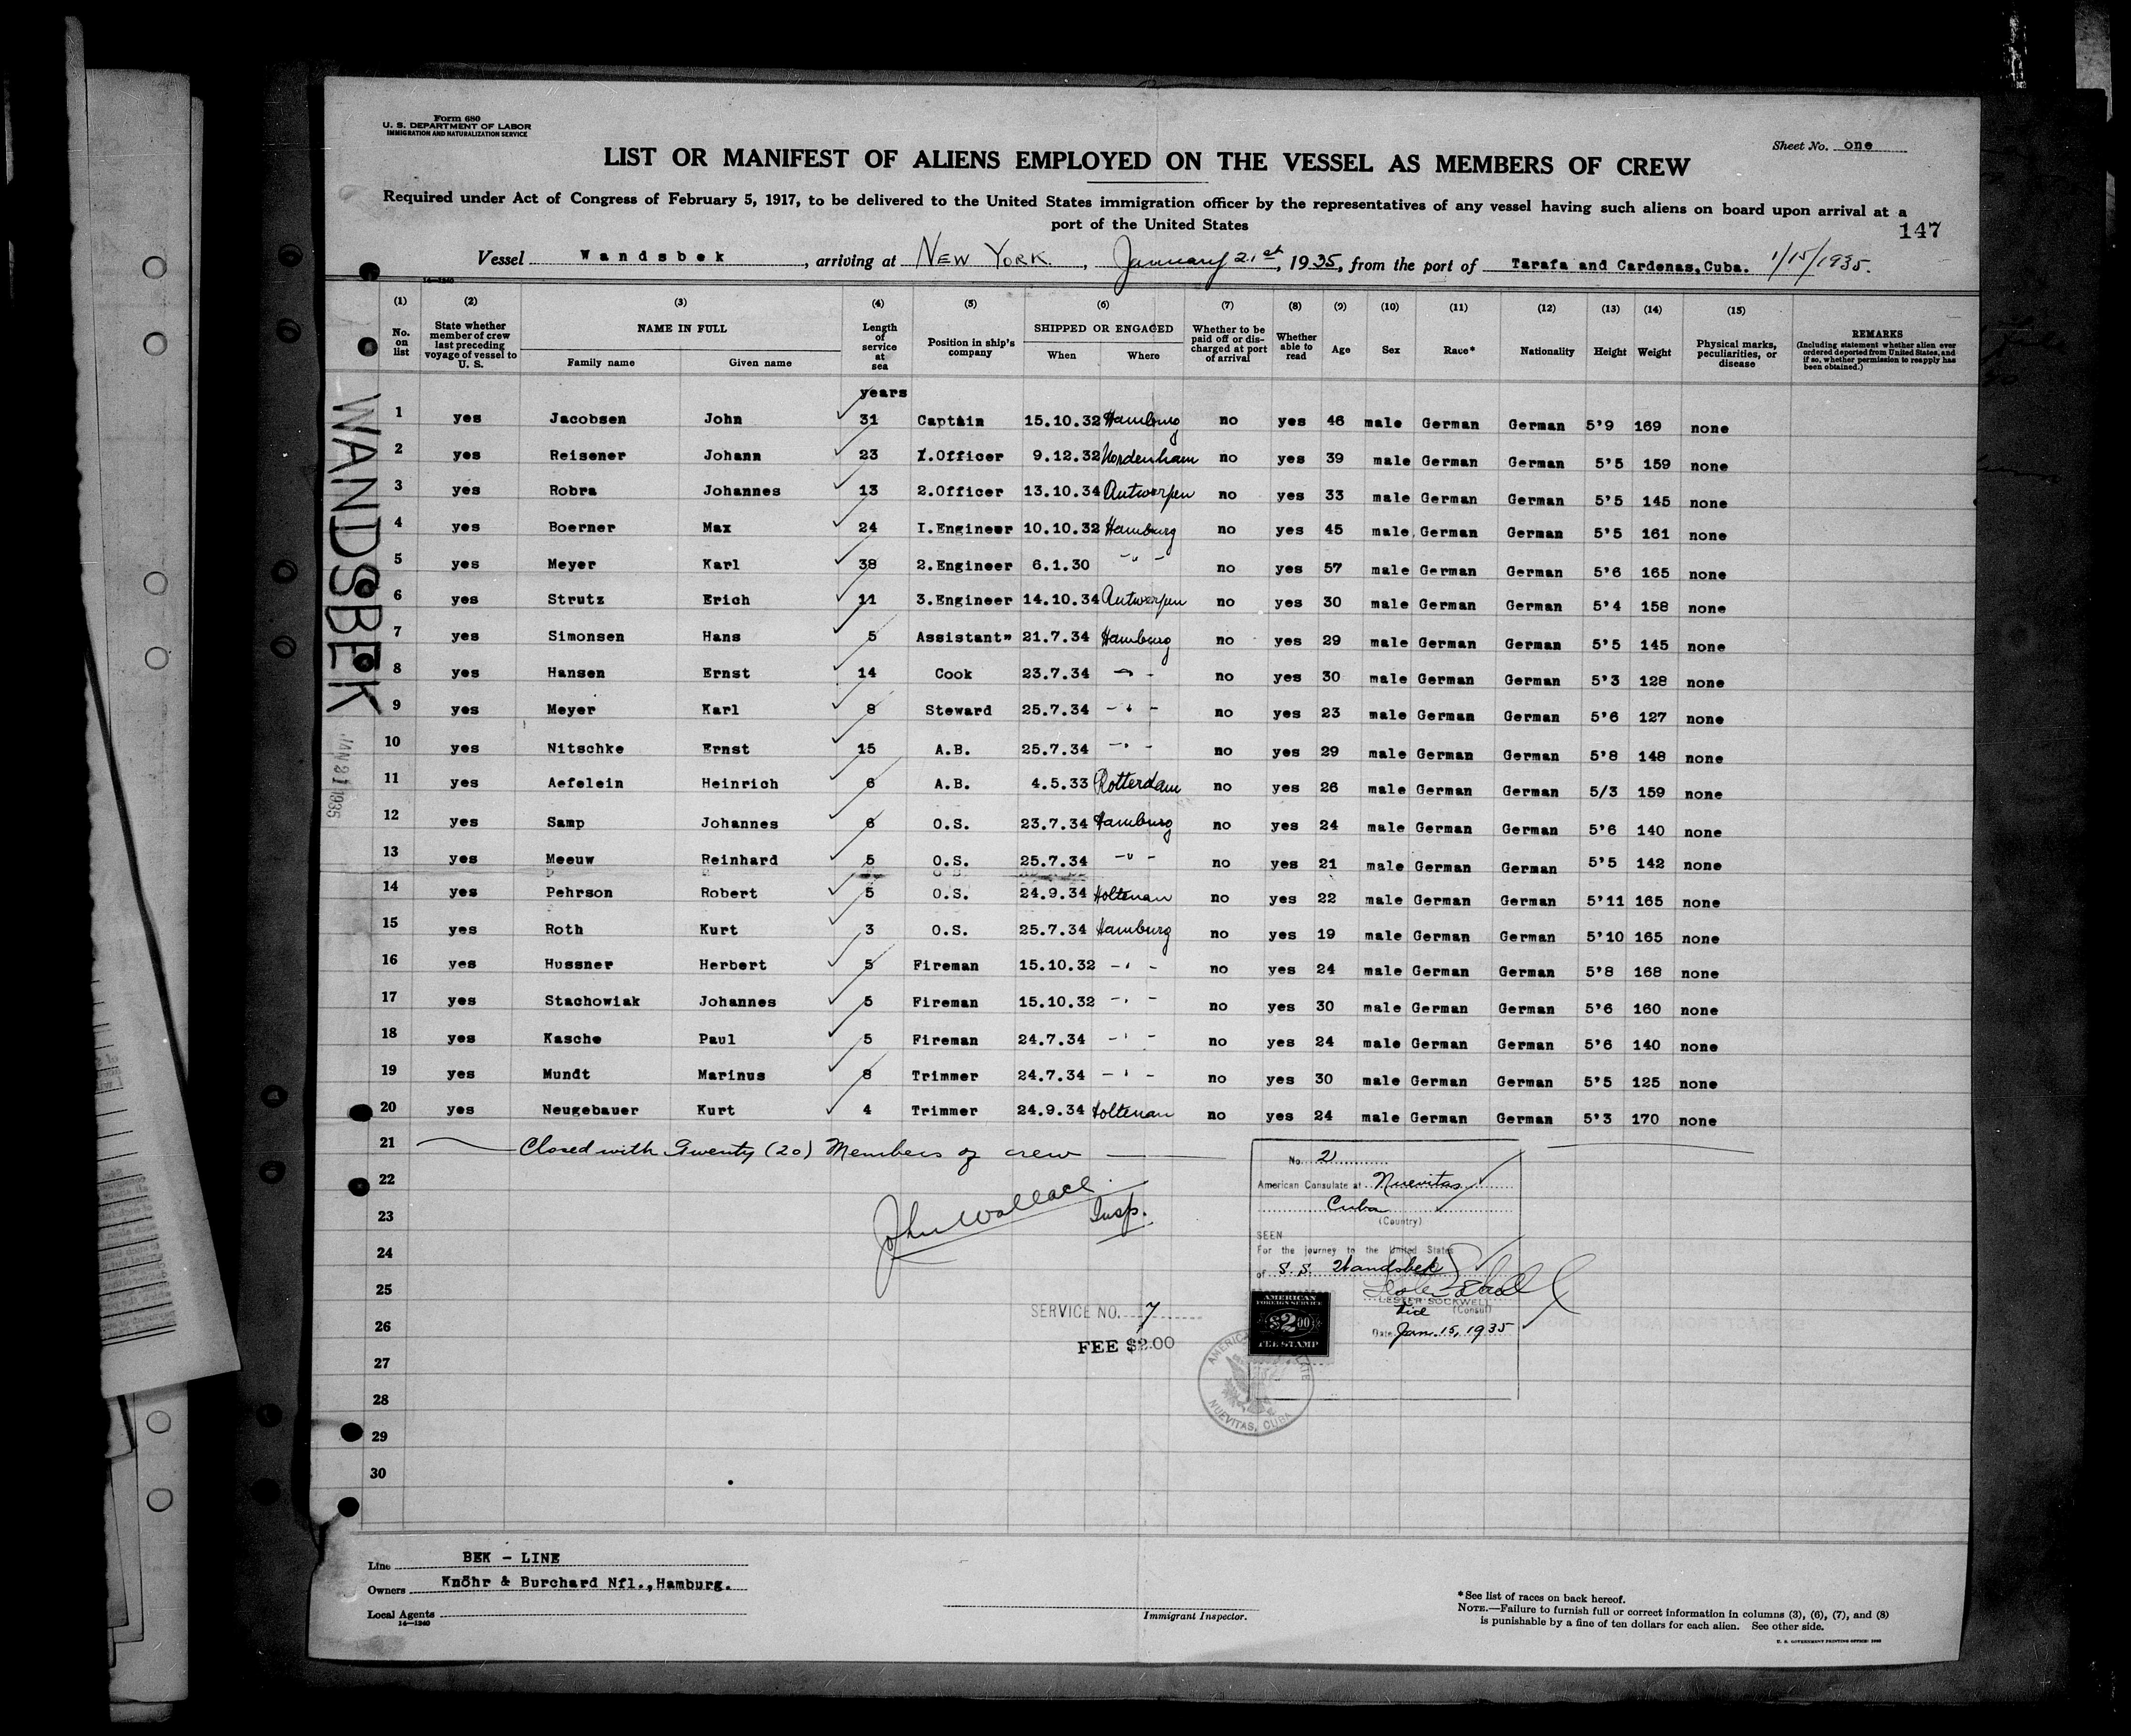 Form 680
U. S. DEPARTMENT OF LABOR
IMMIGRATION AND NATURALIZATION SERVICE
Sheet No. one
LIST OR MANIFEST OF ALIENS EMPLOYED ON THE VESSEL AS MEMBERS OF CREW
Required under Act of Congress of February 5, 1917, to be delivered to the United States immigration officer by the representatives of any vessel having such aliens on board upon arrival at a
port of the United States
147
Vessel Wandsbek, arriving at NEW YORK, January 21st, 1935, from the port of Tarafa and Cardenas, Cuba. 1/15/1935.
14-1240
(1) (2) (3) (4) (5) (6) (7) (8) (9) (10) (11) (12) (13) (14) (15)
No. on list State whether member of crew last preceding voyage of vessel to U. S. NAME IN FULL Family name Given name Length of service at sea Position in ship's company SHIPPED OR ENGAGED When Where Whether to be paid off or discharged at port of arrival Whether able to read Age Sex Race* Nationality Height Weight Physical marks, peculiarities, or disease REMARKS (Including statement whether alien ever ordered deported from United States, and if so, whether permission to reapply has been obtained.)
years
1 yes Jacobsen John 31 Captain 15.10.32 Hamburg no yes 46 male German German 5'9 169 none
2 yes Reisener Johann 23 1.Officer 9.12.32 Nordenham no yes 39 male German German 5'5 159 none
3 yes Robra Johannes 13 2.Officer 13.10.34 Antwerpen no yes 33 male German German 5'5 145 none
4 yes Boerner Max 24 I.Engineer 10.10.32 Hamburg no yes 45 male German German 5'5 161 none
5 yes Meyer Karl 38 2.Engineer 6.1.30 -"- no yes 57 male German German 5'6 165 none
6 yes Strutz Erich 11 3.Engineer 14.10.34 Antwerpen no yes 30 male German German 5'4 158 none
7 yes Simonsen Hans 5 Assistant" 21.7.34 Hamburg no yes 29 male German German 5'5 145 none
8 yes Hansen Ernst 14 Cook 23.7.34 -"- no yes 30 male German German 5'3 128 none
9 yes Meyer Karl 8 Steward 25.7.34 -"- no yes 23 male German German 5'6 127 none
10 yes Nitschke Ernst 15 A.B. 25.7.34 -"- no yes 29 male German German 5'8 148 none
11 yes Aefelein Heinrich 6 A.B. 4.5.33 Rotterdam no yes 26 male German German 5/3 159 none
12 yes Samp Johannes 6 O.S. 23.7.34 Hamburg no yes 24 male German German 5'6 140 none
13 yes Meeuw Reinhard 5 O.S. 25.7.34 -"- no yes 21 male German German 5'5 142 none
14 yes Pehrson Robert 5 O.S. 24.9.34 Holtenau no yes 22 male German German 5'11 165 none
15 yes Roth Kurt 3 O.S. 25.7.34 Hamburg no yes 19 male German German 5'10 165 none
16 yes Hussner Herbert 5 Fireman 15.10.32 -"- no yes 24 male German German 5'8 168 none
17 yes Stachowiak Johannes 5 Fireman 15.10.32 -"- no yes 30 male German German 5'6 160 none
18 yes Kasche Paul 5 Fireman 24.7.34 -"- no yes 24 male German German 5'6 140 none
19 yes Mundt Marinus 8 Trimmer 24.7.34 -"- no yes 30 male German German 5'5 125 none
20 yes Neugebauer Kurt 4 Trimmer 24.9.34 Holtenau no yes 24 male German German 5'3 170 none
21 Closed with Twenty (20) Members of crew
22
23
24
25
26
27
28
29
30
WANDSBEK
JAN 21 1935
John Wallace Insp.
No. 2
American Consulate at Nuevitas
Cuba
(Country)
SEEN
For the journey to the United States
of S.S. Wandsbek
LESTER SOCKWELL
Vice (Consul)
Date Jan. 15, 1935
AMERICAN
FOREIGN SERVICE
$2.00
FEE STAMP
NUEVITAS, CUBA
SERVICE NO. 7
FEE $2.00
Line BEK - LINE
Owners Knöhr & Burchard Nfl., Hamburg.
Local Agents
14-1240
Immigrant Inspector.
*See list of races on back hereof.
NOTE.—Failure to furnish full or correct information in columns (3), (6), (7), and (8)
is punishable by a fine of ten dollars for each alien. See other side.
U. S. GOVERNMENT PRINTING OFFICE